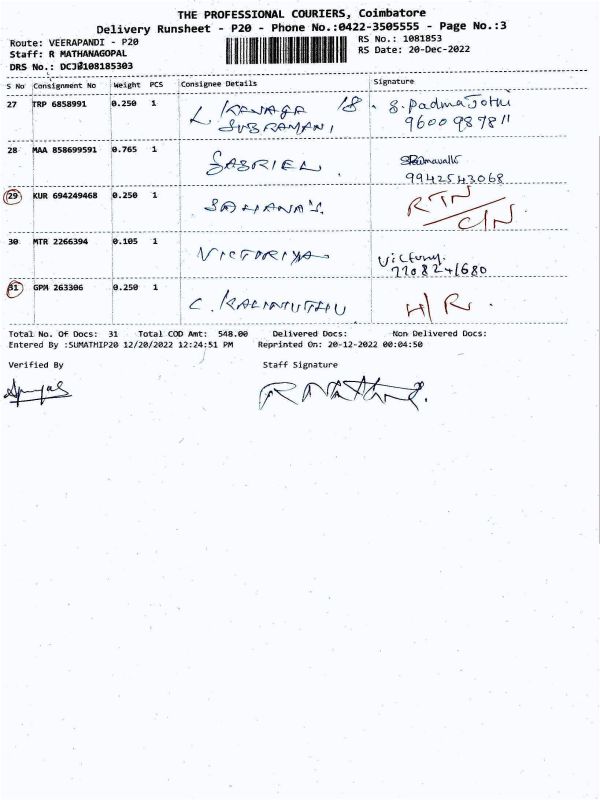 THE PROFESSIONAL COURIERS, Coimbatore
Delivery Runsheet - P20 - Phone No.:0422-3505555 - Page No.:3
Route: VEERAPANDI - P20
RS No.: 1081853
Staff: R MATHANAGOPAL
RS Date: 20-Dec-2022
DRS No.: DCJB108185303
S No Consignment No Weight PCS Consignee Details Signature
27 TRP 6858991 0.250 1 L. KANAGA 18. S. Padma Jothi
SUBRAMANI 9600987811
28 MAA 858699591 0.765 1 GABRIEL
9942543068
29 KUR 694249468 0.250 1 SAHANA'S RTN
C/N
30 MTR 2266394 0.105 1 VICTORIYA Victory.
7708241680
31 GPM 263306 0.250 1 C. KALIMUTHU H/R.
Total No. Of Docs: 31 Total COD Amt: 548.00 Delivered Docs: Non Delivered Docs:
Entered By :SUMATHIP20 12/20/2022 12:24:51 PM Reprinted On: 20-12-2022 00:04:50
Verified By Staff Signature